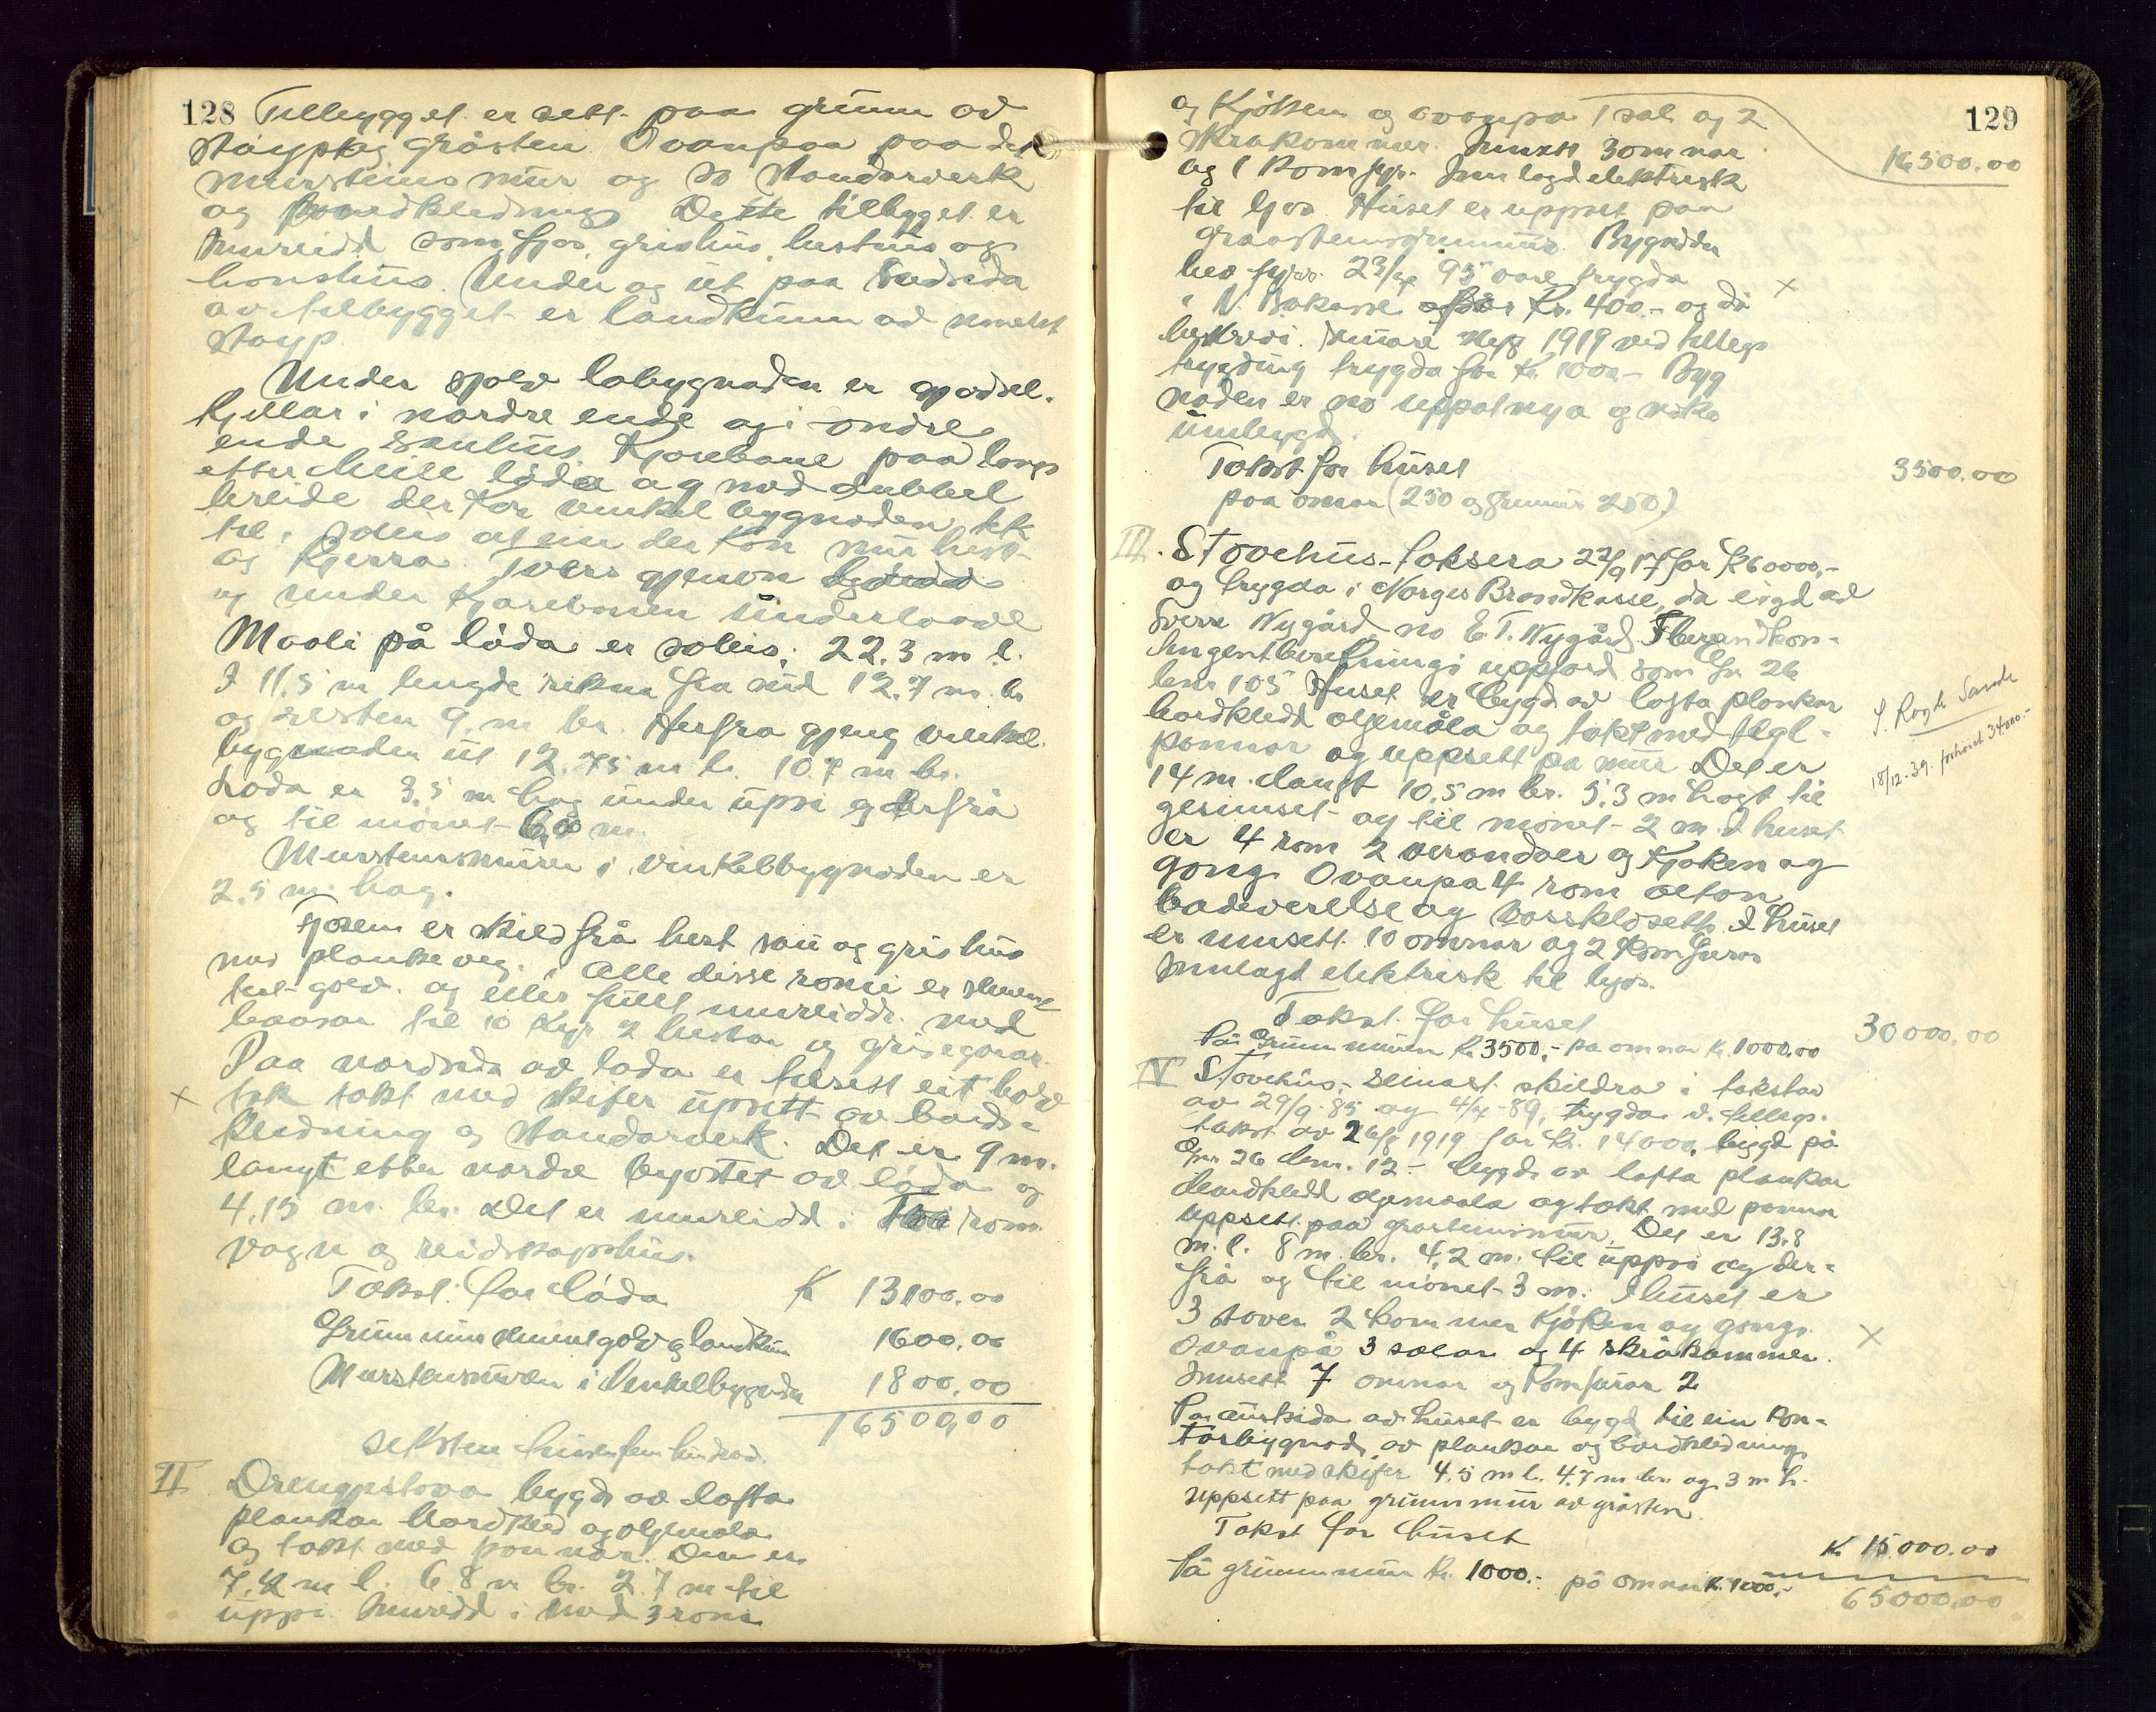 128 Tilbygget er sett paa grunn av
støypt og gråsten. Ovanpaa paa det
murstensmur og so standarverk
og bordkledning. Dette tilbygget er
innreidd som fjos, grishus, hesthus og
honshus. Under og ut paa
av tilbygget er landkum av
støyp
Under sjolv lobygnaden er gjodsel-
kjellar i nordre ende og i ondre
ende sauhus. Kjorebane paa langs
etter heile löda og med dubbel
breide der for vinkelbygnaden
til, soleis at ein der kan snu hest
og kjerra. Tvers gjenom
og under kjorebanen underlaave
Maali på löda er soleis: 22.3 m l.
I 11.5 m lengde rekna fra 12.7 m br
og resten 9 m br. Herfra gjeng vinkel-
bygnaden ut 12.75 m l. 10.7 m br.
Löda er 3.5 m hog under upsi og derfrå
og til mönet 6,0 m.
Murstensmuren i vinkelbbygnaden er
2.5 m. hog.
Fjosen er skild frå hest sau og grishus
med plankeveg. Alle disse romi er
golv og elles fullt innreidde med
baasar til 10 kyr 2 hestar og
Paa nordsida av loda er tilsett eit
tak takt med skifer uppsett av bord-
kledning og standarverk. Det er 9 m.
langt etter nordre av löda og
4.15 m. br. Det er innreidd i rom
vogn og reidskapshus.
Takst: for löda K 13100.00
Grunnmur sementgolv og landkum 1600.00
Murstensmuren i Vinkelbygnaden 1800.00
16500,00
seksten tusen fem hundrad.
II Drengestova bygd av lofta
plankar bordkled og oljemala
og takt med pannar. Den er
7.2 m l. 6.8 m br. 2.7 m til
uppsi. Innreidd i med 3 rom
129
og Kjöken og ovanpa 1 sal og 2
skrakommar. Innsett 3 omnar 16500.00
og 1 komfyr. Innlagd elektrisk
til ljos. Huset er uppsett paa
graastensgrunnmur. Bygnaden
hev fyrr 23/4 95 vore trygda
i N. Brakasse for Kr. 400.- og då
beskrivi. Seinare 1919 ved tillegs
trygding trygda for Kr 1000.- Byg
naden er no uppatnya og
umbygd.
Takst for huset 3500.00
paa omnar (250 og grunnmur 250)
III. Stovehus taksera 22/9 17 for K 60000.-
og trygda i Norges Brandkasse, da eigd av
Sverre Nygård no E. T. Nygård.
uppford som Gr 26
bnr 105 Huset er bygd av lofta plankar
bordkledd oljemåla og takt med tegl-
pannar og uppsett pa mur Det er
14 m. langt 10.5 m br. 5.3 m hogt til
gesimset og til mönet 2 m. I huset
er 4 rom 2 verandaer og Kjoken og
gong. Ovanpa 4 rom alton,
badeverelse og vassklosett. I huset
er innsett 10 omnar og 2 Komfurar
Innlagt elektrisk til lyos.
Takst for huset 30000,00
På Grunnmuren K 3500,- pa omnar K. 1000.00
S. Sande
18/12-39. forhoiet 34000.-
IV Stovehus. Seinast skildra i takstar
av 29/9-85 og 4/4-89, trygda v. tillegs-
takst av 26/8 1919 for kr. 14000. bygd på
Gnr 26 bnr. 12 - bygd av lofta plankar
bordkledd oljemaala og takt med pannar
uppsett paa grastensmur. Det er 13.8
m. l. 8 m. br. 4,2 m. til uppsi og der-
frå og til mönet 3 m. I huset er
3 stover 2 kommer Kjöken og gong.
Ovanpå 3 salar og 4 skråkammer.
Innsett 7 omnar og Komfurar 2
Pa austsida av huset er bygd til ein kon-
torbygnad av plankar og bordkledning
takt med skifer 4.5 m l. 4.7 m br og 3 m h.
uppsett paa grunnmur av gråsten.
Takst for huset K. 15000.00
På grunnmur kr. 1000.- på omnar K. 1000.-
65000.00